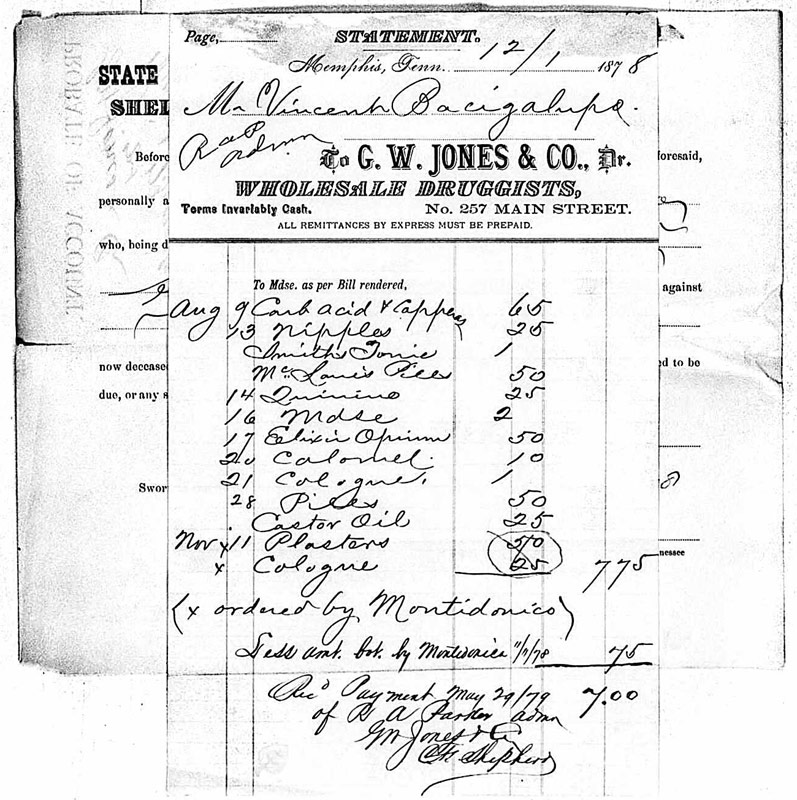 Page,
STATEMENT.
Memphis, Tenn. 12/1 1878
Mr Vincent Bacigalupo.
R a P admr
To G. W. JONES & CO., Dr.
WHOLESALE DRUGGISTS,
Terms Invariably Cash. No. 257 MAIN STREET.
ALL REMITTANCES BY EXPRESS MUST BE PREPAID.
To Mdse. as per Bill rendered,
Aug 9 Carb acid & Copperas 65
13 Nipples 25
Smiths Tonic 1
Mc Lanes Pills 50
14 Quinine 25
16 Mdse 2
17 Elixir Opium 50
20 Calomel. 10
21 Cologne, 1
28 Pills 50
Castor Oil 25
Nov x 11 Plasters 50
x Cologne 25 775
(x ordered by Montidonico)
Less amt. bot. by Montidonico 11/11/78 75
Recd Payment May 29/79 7.00
of R A Parker admr
GW Jones & Co
Shepherd
PROBATE OF ACCOUNT
STATE
SHEL
Before
personally a
who, being d
now deceased
due, or any s
Swor
foresaid,
against
ed to be
8
nessee